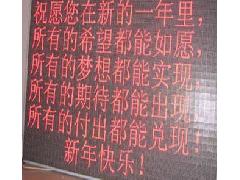 祝愿您在新的一年里,
所有的希望都能如愿,
所有的梦想都能实现,
所有的期待都能出现,
所有的付出都能兑现!
新年快乐!